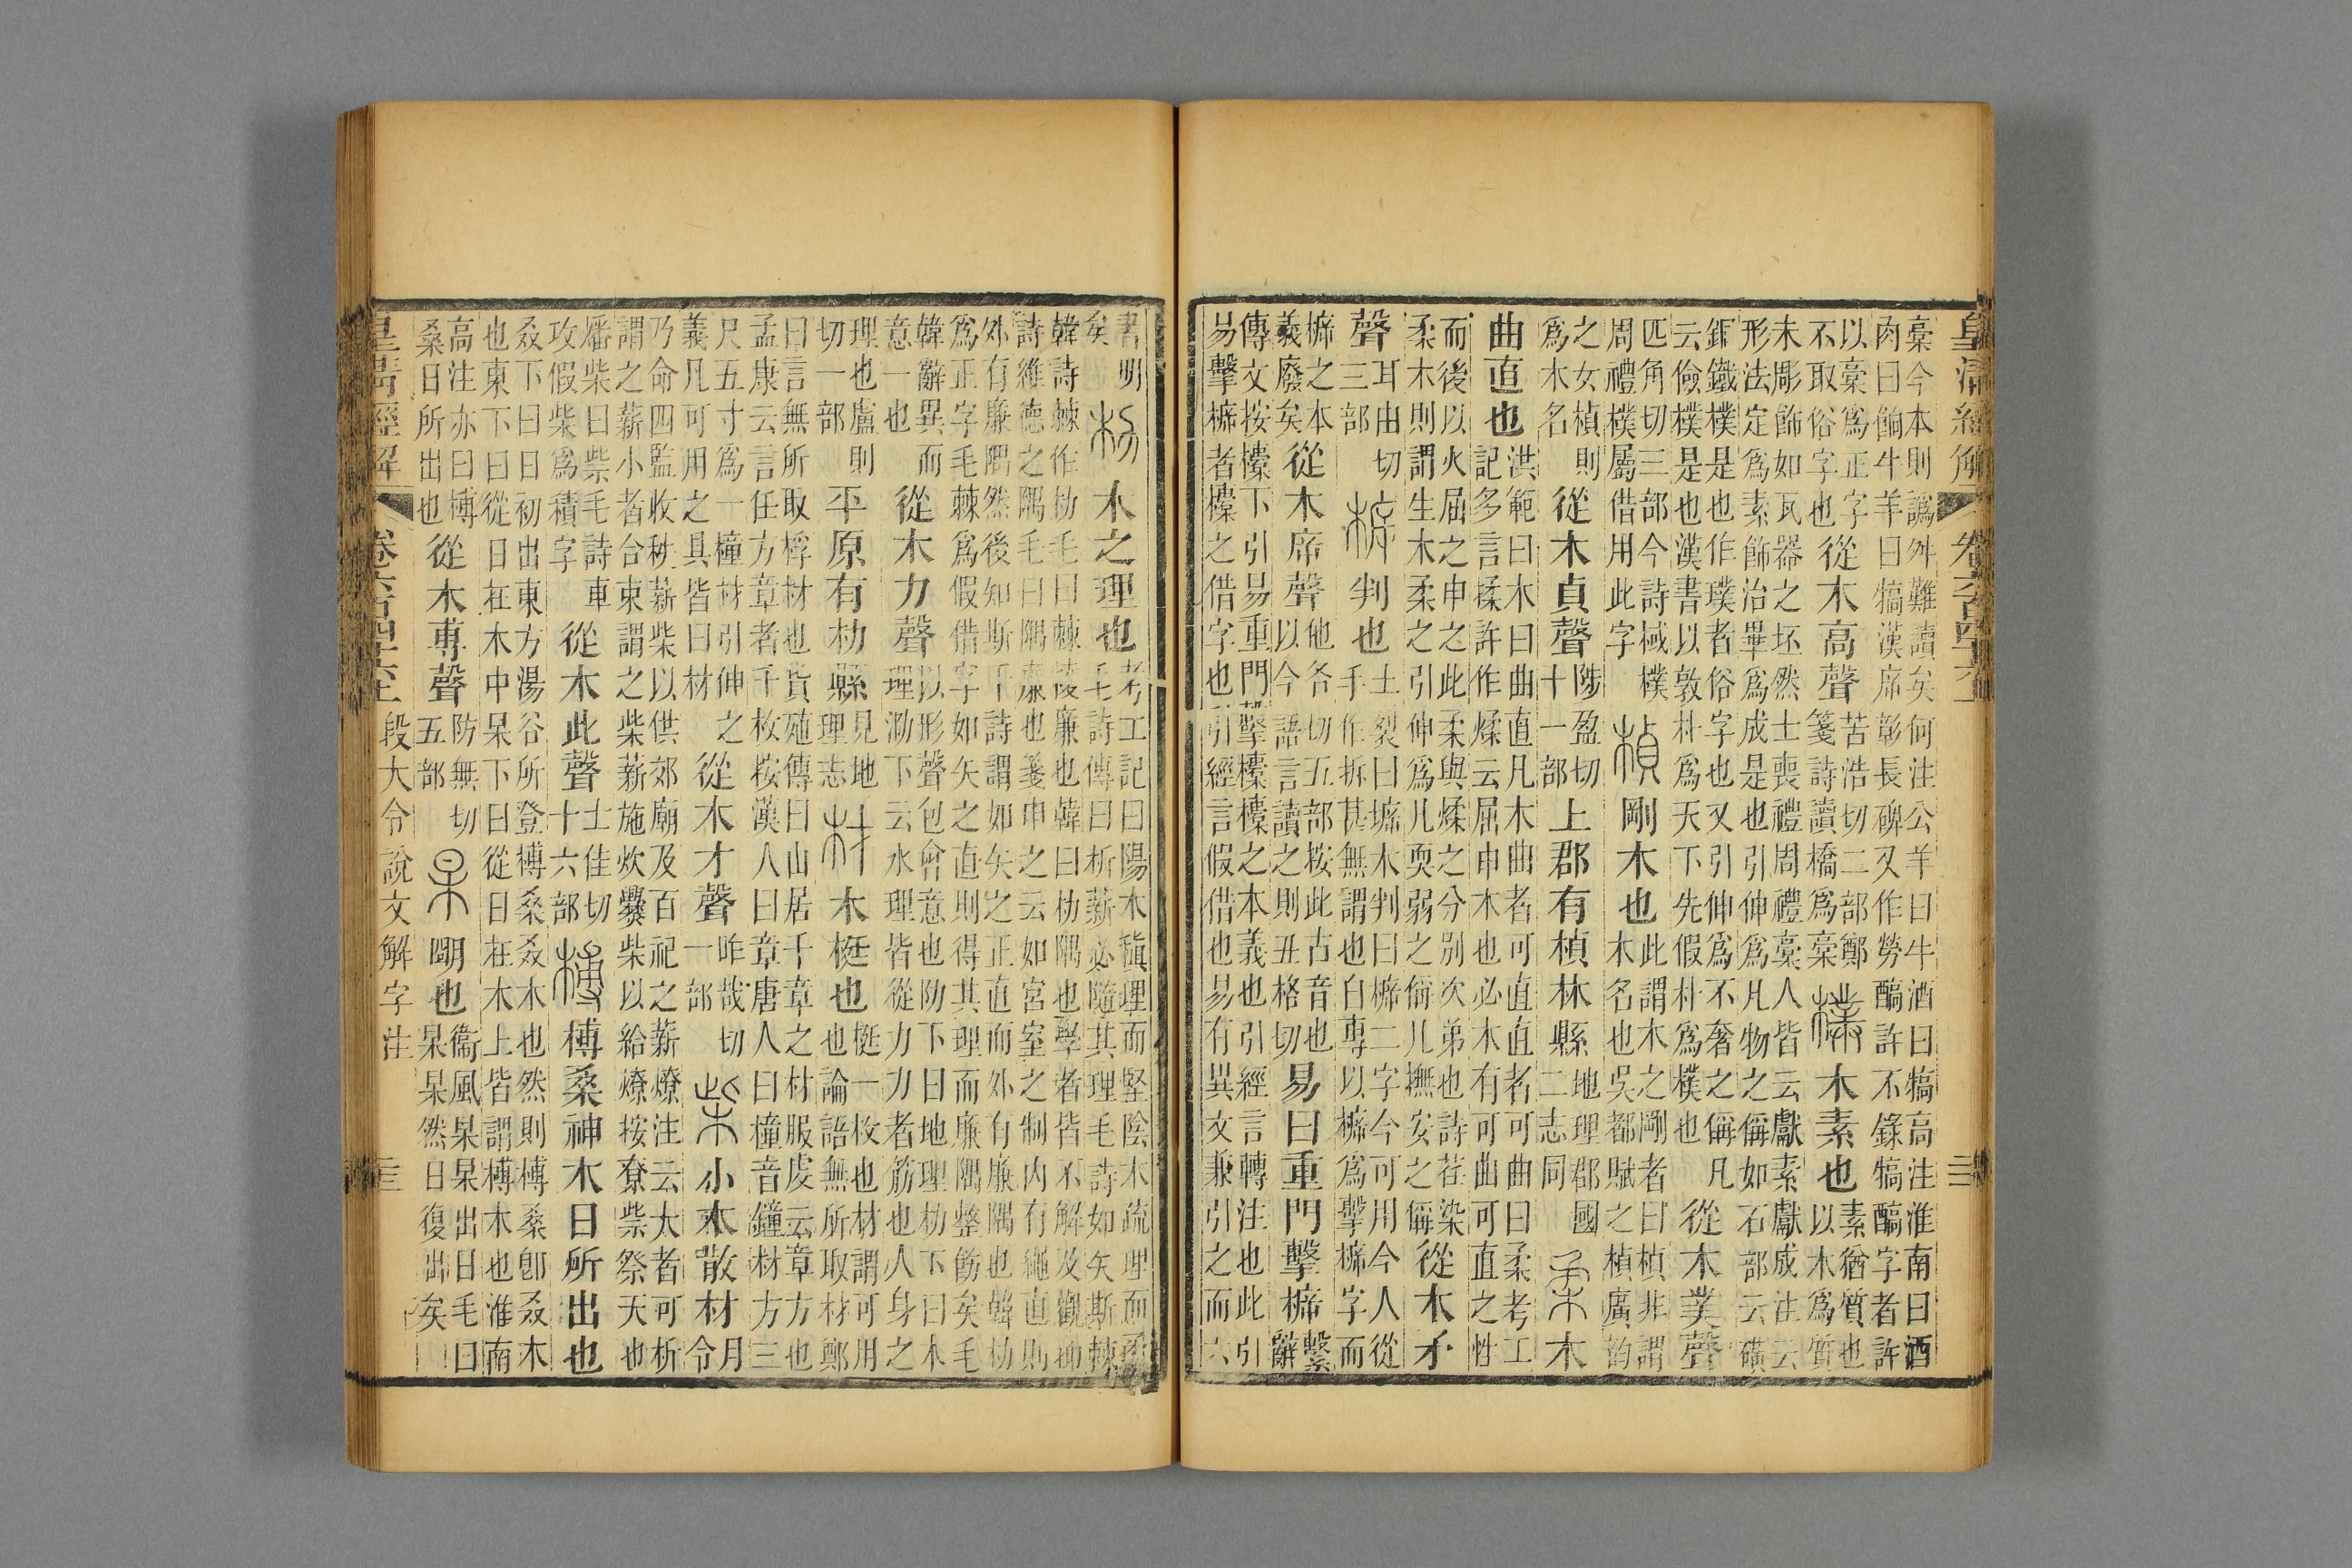 皇清經解 卷六百四十六上 三
稾今本則譌舛難讀矣何注公羊曰牛酒曰犒高注淮南曰酒
肉曰餉牛羊曰犒漢席彰長碑又作勞 許不錄犒 字者許
以稾爲正字不取俗字也從木高聲苦浩切二部鄭箋詩讀橋爲稾 樸木素也素猶質也以木爲質
未彫飾如瓦器之坯然士喪禮周禮稾人皆云獻素獻成注云
形法定爲素飾治畢爲成是也引伸爲凡物之偁如石部云磺
銅鐵樸是也作璞者俗字也又引伸爲不奢之偁凡云儉樸是也漢書以敦朴爲天下先假朴爲樸也從木菐聲
匹角切三部今詩棫樸周禮樸屬借用此字 楨剛木也此謂木之剛者曰楨非謂木名也吳都賦之楨廣韵
之女楨則爲木名從木貞聲陟盈切十一部上郡有楨林縣地理郡國二志同 柔木
曲直也洪範曰木曰曲直凡木曲者可直直者可曲曰柔考工記多言揉許作煣云屈申木也必木有可曲可直之性
而後以火屈之申之此柔與煣之分別次弟也詩荏染柔木則謂生木柔之引伸爲凡耎弱之偁凡撫安之偁從木矛
聲耳由切三部 㯓判也土裂曰㙤木判曰㯓二字今可用今人從手作拆甚無謂也自專以㯓爲擊㯓字而
㯓之本義廢矣從木㡿聲他各切五部按此古音也以今語言讀之則丑格切易曰重門擊㯓繫辭
傳文按㯕下引易重門擊㯕㯕之本義也引經言轉注也此引
易擊㯓者㯕之借字也引經言假借也易有異文兼引之而六
書明矣 朸木之理也考工記曰陽木稹理而堅陰木疏理而柔毛詩傳曰析薪必隨其理毛詩如矢斯棘
韓詩棘作朸毛曰棘稜廉也韓曰朸隅也學者皆不解及觀抑
詩維德之隅毛曰隅廉也箋申之云如宮室之制內有繩直則
外有廉隅然後知斯干詩謂如矢之正直而外有廉隅也韓朸
爲正字毛棘爲假借字如矢之直則得其理而廉隅整飭矣毛
韓辭異而意一也從木力聲以形聲包會意也阞下曰地理朸下曰木理泐下云水理皆從力力者筋也人身之
理也盧則切一部平原有朸縣見地理志 材木梃也梃一枚也材謂可用也論語無所取材鄭
曰言無所取桴材也貨殖傳曰山居千章之材服虔云章方也
孟康云言任方章者千枚按漢人曰章唐人曰橦音鐘材方三
尺五寸爲一橦材引伸之義凡可用之具皆曰材從木才聲昨哉切一部 柴小木散材月令
乃命四監收秩薪柴以供郊廟及百祀之薪燎注云大者可析
謂之薪小者合束謂之柴薪施炊爨柴以給燎按尞柴祭天也
燔柴曰柴毛詩車攻假柴爲積字從木此聲士佳切十六部 榑榑桑神木日所出也
叒下曰日初出東方湯谷所登榑桑叒木也然則榑桑卽叒木
也東下曰從日在木中杲下曰從日在木上皆謂榑木也淮南
高注亦曰榑桑日所出也從木尃聲防無切五部 杲朙也衞風杲杲出日毛曰杲杲然日復出矣
皇清經解 卷六百四十六上 段大令說文解字注 三